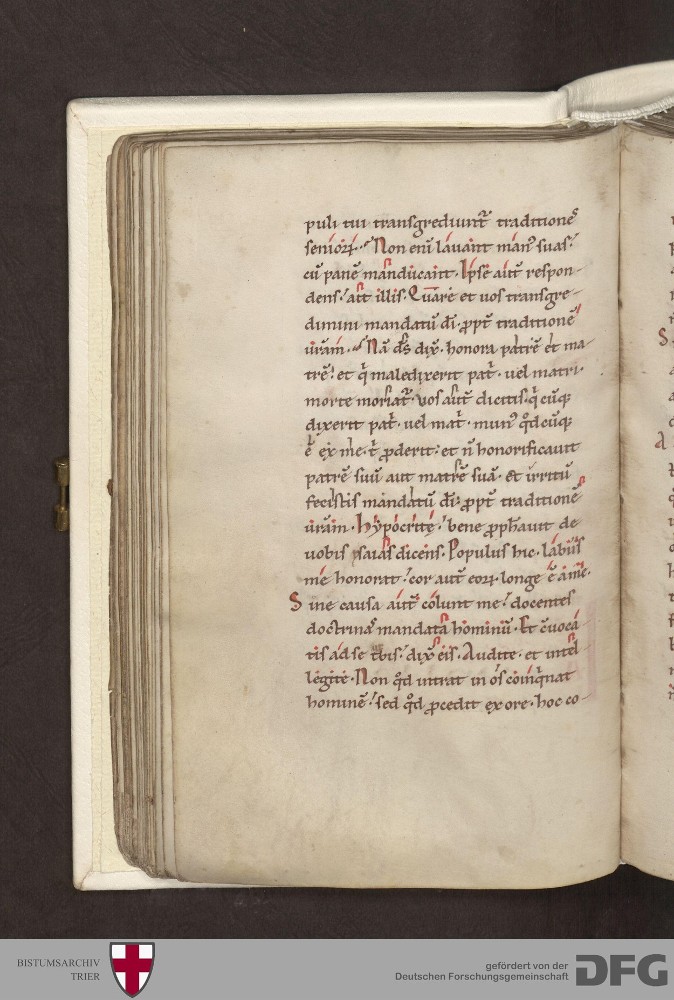 puli tui transgrediunt᷑ traditiones
senioꝝ. Non eni᷑ lauant man᷒ suas.
cū panē manducant. Ipse aut̄ respon-
dens. ait illis. Quare et uos transgre-
dimini mandatū dī. ꝓpt̄ traditionē
ur̄am. Nā dſ̄ dix̄. honora patrē et ma-
trē. et q̄ maledixerit pat̄. uel matri.
morte moriat᷑. Vos aut̄ dicitis. q̄cūq;
dixerit pat̄. uel mat̄. mun᷒ qd̄cūq;
ē ex me. t̄ ꝓderit. et n̄ honorificauit
patrē suū aut matrē suā. Et irritū
fecistis mandatū dī. ꝓpt̄ traditionē
ur̄am. Hypocritę. bene ꝓph̄auit de
uobis ysaias dicens. Populus hic. labiis
me honorat. cor aut̄ eoꝝ. longe ē a me.
Sine causa aut̄ colunt me. docentes
doctrinas mandata hominū. Et c̄uoca-
tis ad se t̄bis. dix̄ eis. Audite. et intel-
legite. Non qd̄ intrat in os coinq̄nat
hominē. sed qd̄ ꝓcedit ex ore. hoc co-
BISTUMSARCHIV
TRIER
gefördert von der
Deutschen Forschungsgemeinschaft
DFG